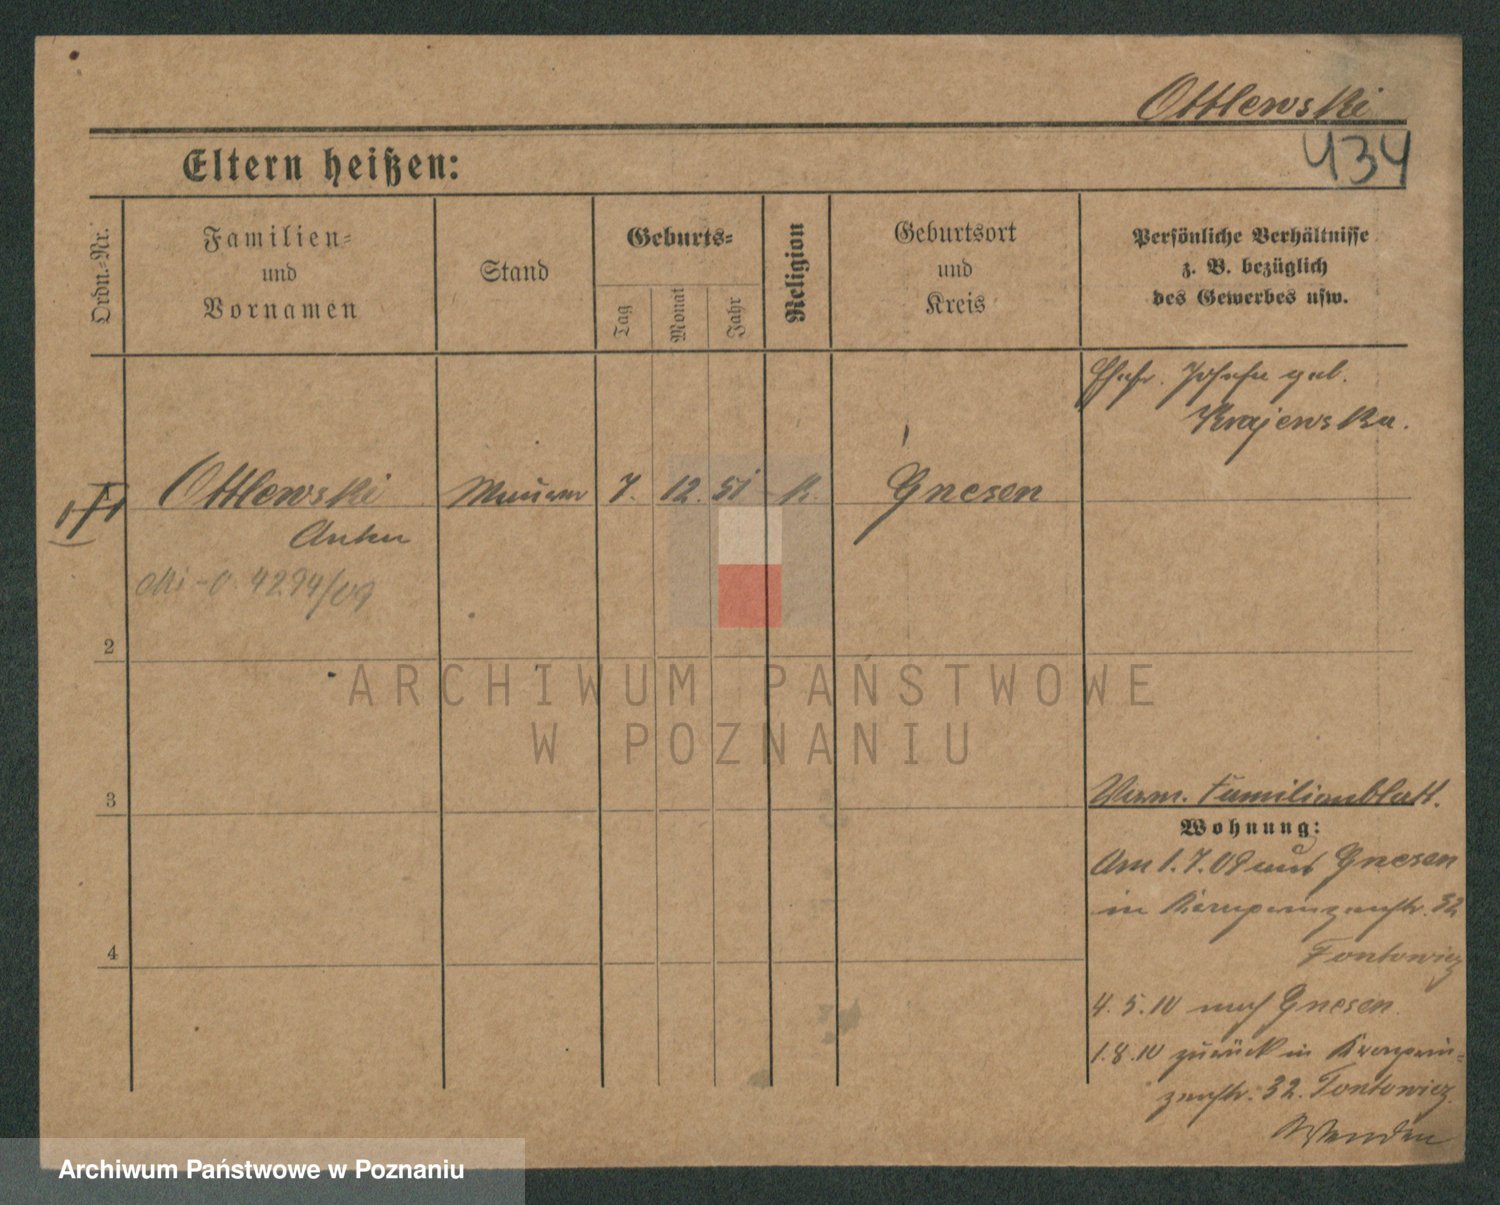 Ottlewski
434
Eltern heißen:
Ordn.-Nr.
Familien-
und
Vornamen
Stand
Geburts-
Tag
Monat
Jahr
Religion
Geburtsort
und
Kreis
Persönliche Verhältnisse
z. B. bezüglich
des Gewerbes usw.
Ehefr. Josefa geb.
Krajewska.
Ottlewski Maurer 7. 12. 51 k. Gnesen
Anton
4294/09
2
3
4
Verm. Familienblatt.
Wohnung:
Am 1.7.09 aus Gnesen
in Kronprinzenstr. 32
Tontowicz
4.5.10 nach Gnesen.
1.8.10 zurück in Kronprin-
zenstr. 32. Tontowicz.
Wenden
ARCHIWUM PAŃSTWOWE
W POZNANIU
Archiwum Państwowe w Poznaniu